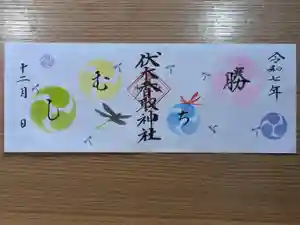 令和七年
勝
ち
伏木香取神社
む
し
十二月 日